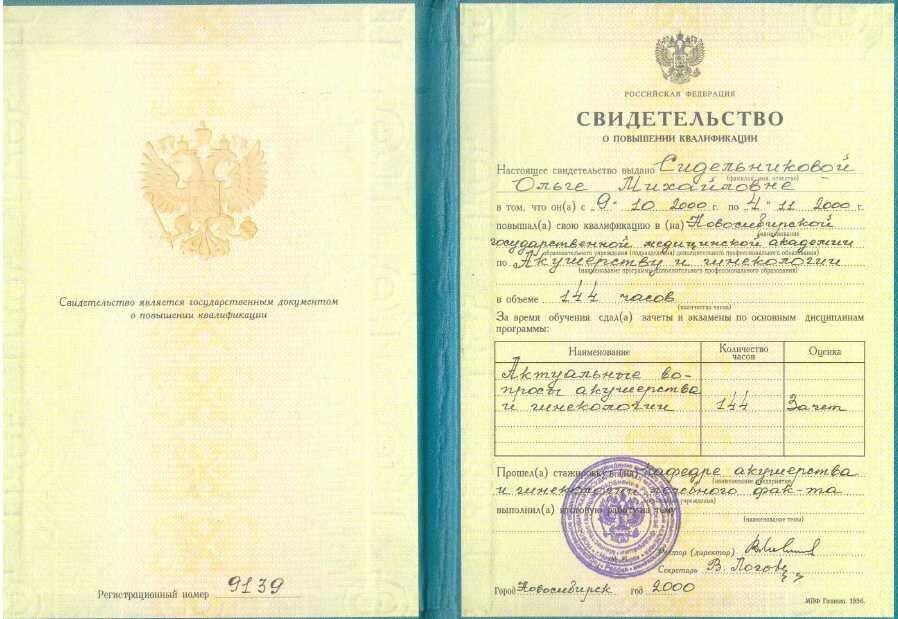 Свидетельство является государственным документом
о повышении квалификации
Регистрационный номер 9139
РОССИЙСКАЯ ФЕДЕРАЦИЯ
СВИДЕТЕЛЬСТВО
О ПОВЫШЕНИИ КВАЛИФИКАЦИИ
Настоящее свидетельство выдано Сидельниковой
(фамилия, имя, отчество)
Ольге Михайловне
в том, что он(а) с „9" 10 2000 г. по „4" 11 2000 г.
повышал(а) свою квалификацию в (на) Новосибирской
(наименование
государственной медицинской академии
образовательного учреждения (подразделения) дополнительного профессионального образования)
по Акушерству и гинекологии
(наименование программы дополнительного профессионального образования)
в объеме 144 часов
(количество часов)
За время обучения сдал(а) зачеты и экзамены по основным дисциплинам
программы:
Наименование Количество часов Оценка
Актуальные во-
просы акушерства
и гинекологии 144 Зачет
Прошел(а) стажировку в (на) кафедре акушерства
(наименование предприятия,
и гинекологии лечебного фак-та
учреждения)
выполнил(а) итоговую работу на тему
(наименование темы)
Ректор (директор)
Секретарь В.
Город Новосибирск год 2000
МПФ Гознака. 1996.